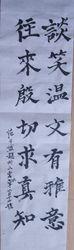 談笑温文有雅意
往來殷切求真知